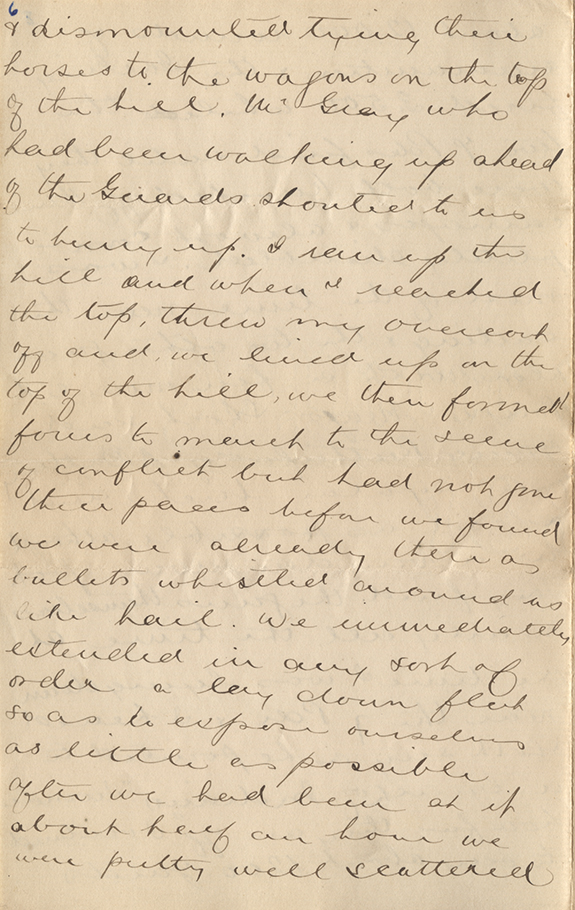 6
& dismounted tying their
horses to the wagons on the top
of the hill. Mr Gray who
had been walking up ahead
of the Guards shouted to us
to hurry up. I ran up the
hill and when I reached
the top, threw my overcoat
off and, we lined up on the
top of the hill, we then formed
fours to march to the scene
of conflict but had not gone
three paces before we found
we were already there as
bullets whistled around us
like hail. We immediately
extended in any sort of
order & lay down flat
so as to expose ourselves
as little as possible
after we had been at it
about half an hour we
were pretty well scattered